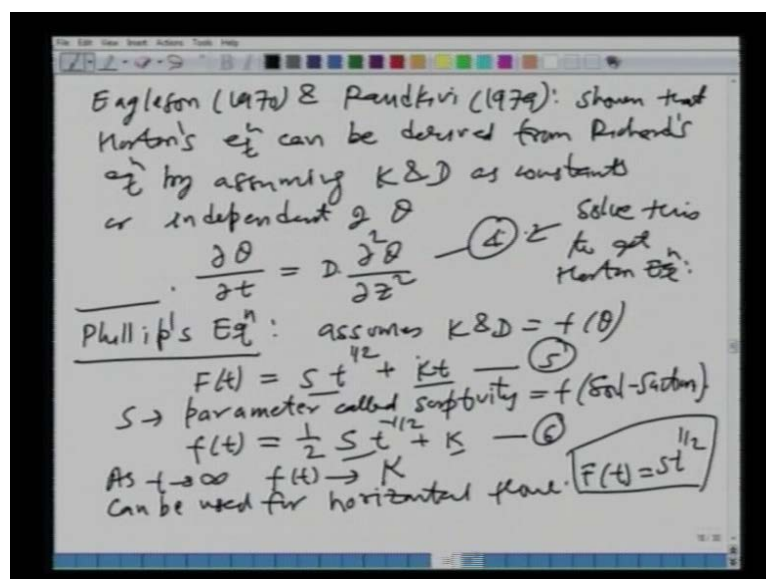 File Edit View Insert Actions Tools Help
Eagleson (1970) & Raudkivi (1979): shown that
Horton's eqⁿ can be derived from Richard's
eqⁿ by assuming K&D as constants
or independent of θ
∂θ/∂t = D. ∂²θ/∂z² — ④ ← Solve this
to get
Horton Eqⁿ:
Phillip's Eqⁿ: assumes K&D = f(θ)
F(t) = S t^1/2 + Kt — ⑤
S → parameter called sorptivity = f(Soil-Suction)
f(t) = 1/2 S t^-1/2 + K — ⑥
As t→∞ f(t) → K
Can be used for horizontal flow. F(t) = St^1/2